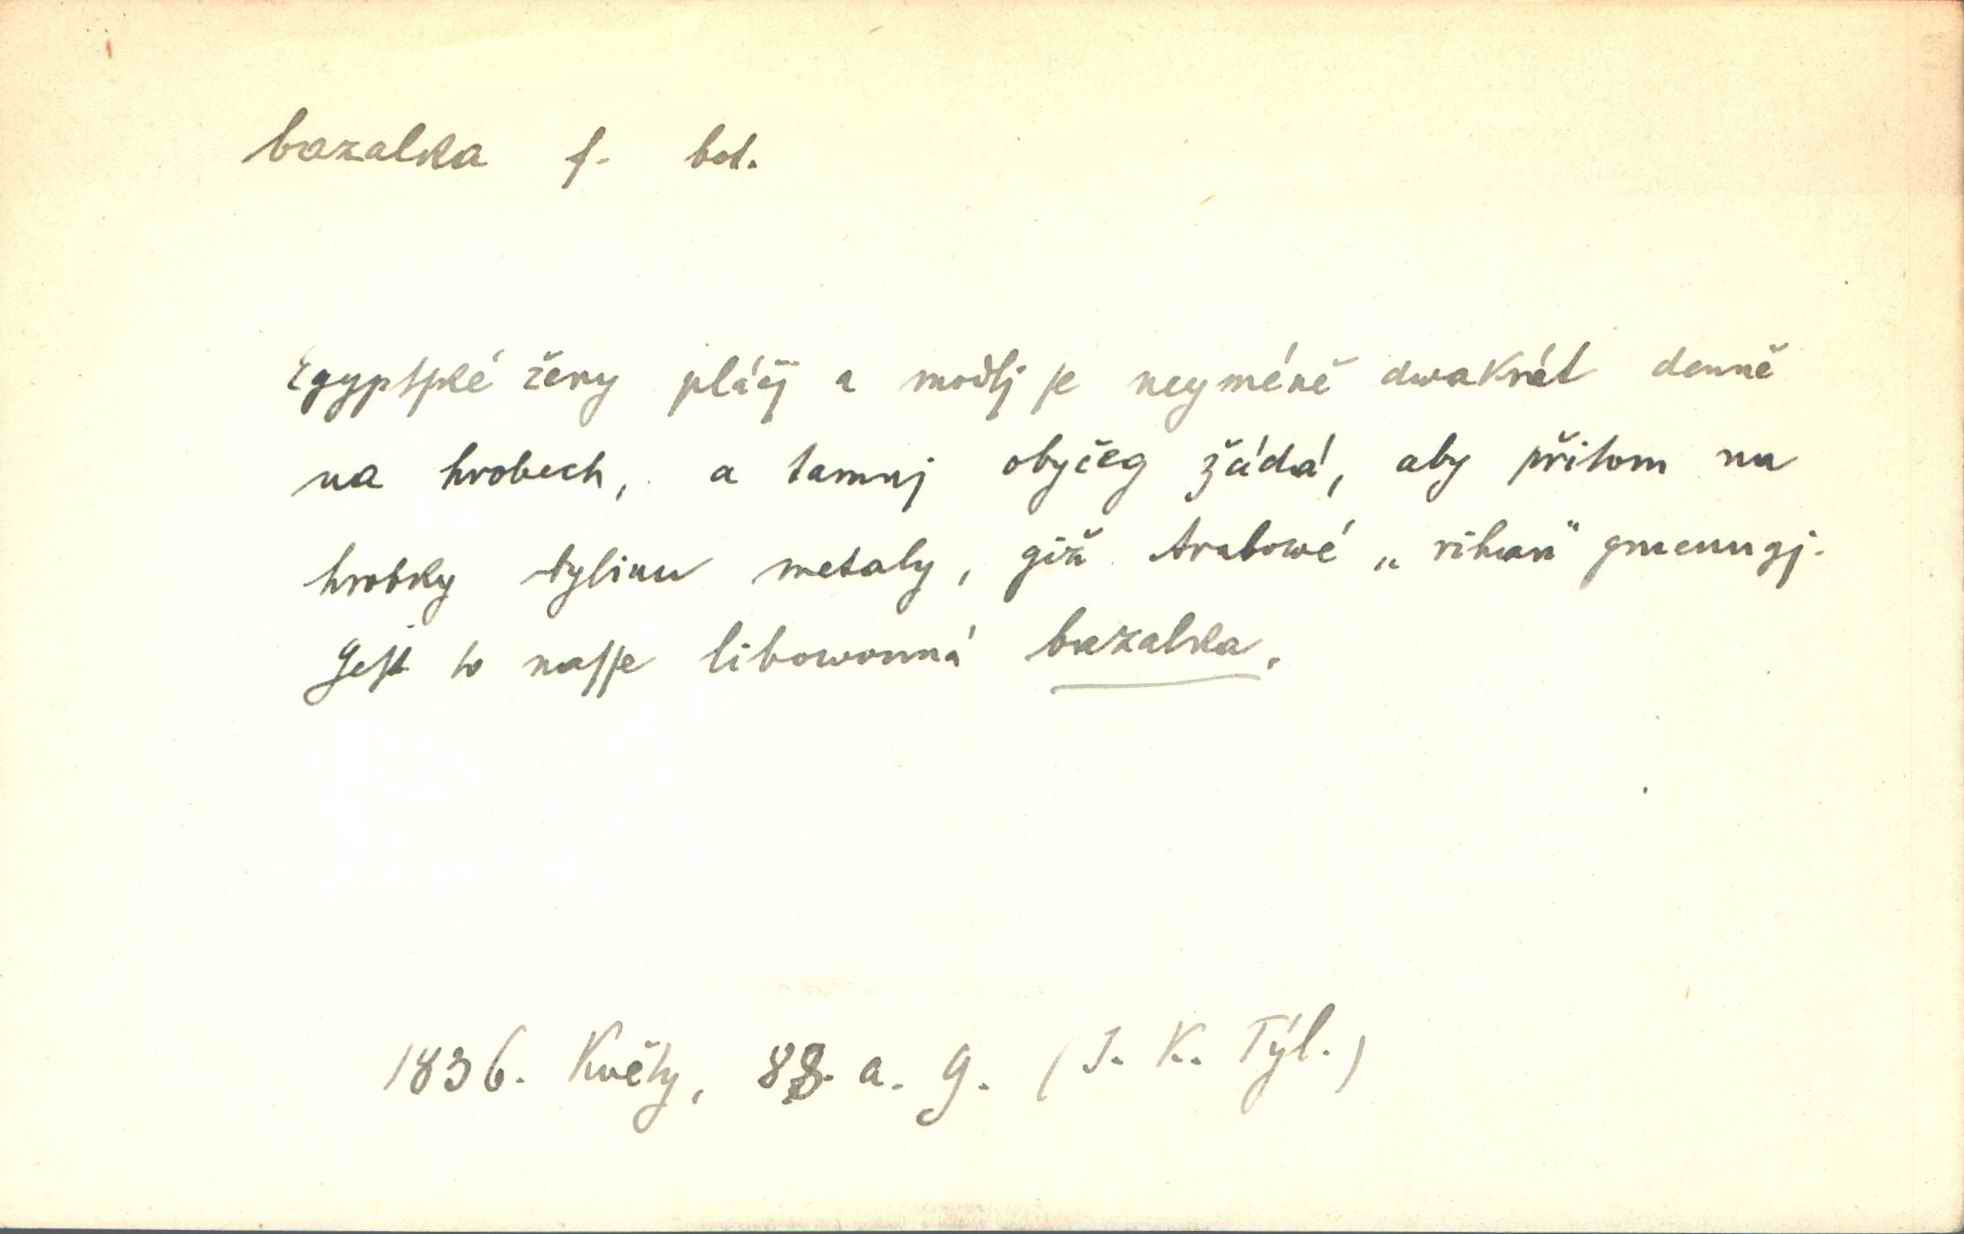 bazalka f. bot.
Egyptſké ženy pláčj a modlj ſe neyméně dwakrát denně
na hrobech, a tamnj obyčeg žádá, aby přitom na
hrobky bylinu metaly, giž Arabowé „rihan“ gmenugj.
Geſt to naſſe libowonná bazalka.
1836. Květy, 88. a. g. (J. K. Týl.)